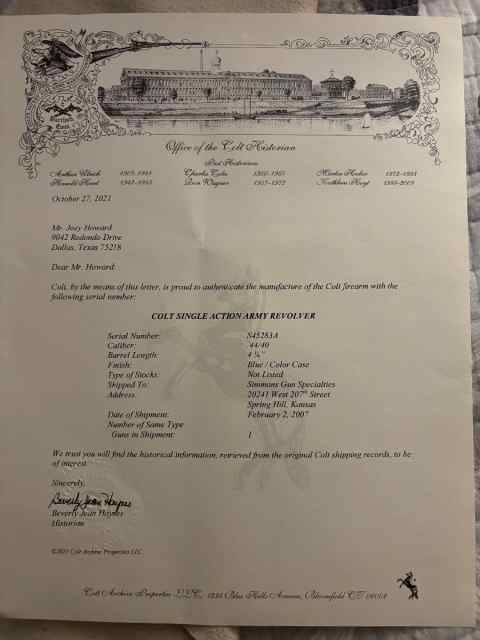 Office of the Colt Historian
Past Historians
Arthur Ulrich
Charles Coles
Martin Huber
Ronald
Don Wagner
Kathleen Hoyt
October 27, 2021
Mr. Joey Howard
9042 Redondo Drive
Dallas, Texas 75218
Dear Mr. Howard:
Colt, by the means of this letter, is proud to authenticate the manufacture of the Colt firearm with the
following serial number:
COLT SINGLE ACTION ARMY REVOLVER
Serial Number: S45283A
Caliber: .44/40
Barrel Length: 4 ¾"
Finish: Blue / Color Case
Type of Stocks: Not Listed
Shipped To: Simmons Gun Specialties
Address: 20241 West 207th Street
Spring Hill, Kansas
Date of Shipment: February 2, 2007
Number of Same Type
Guns in Shipment: 1
We trust you will find the historical information, retrieved from the original Colt shipping records, to be
of interest.
Sincerely,
Beverly Jean Haynes
Beverly Jean Haynes
Historian
©2021 Colt Archive Properties LLC.
Colt Archive Properties LLC, Blue Hills Avenue, Bloomfield CT 06002